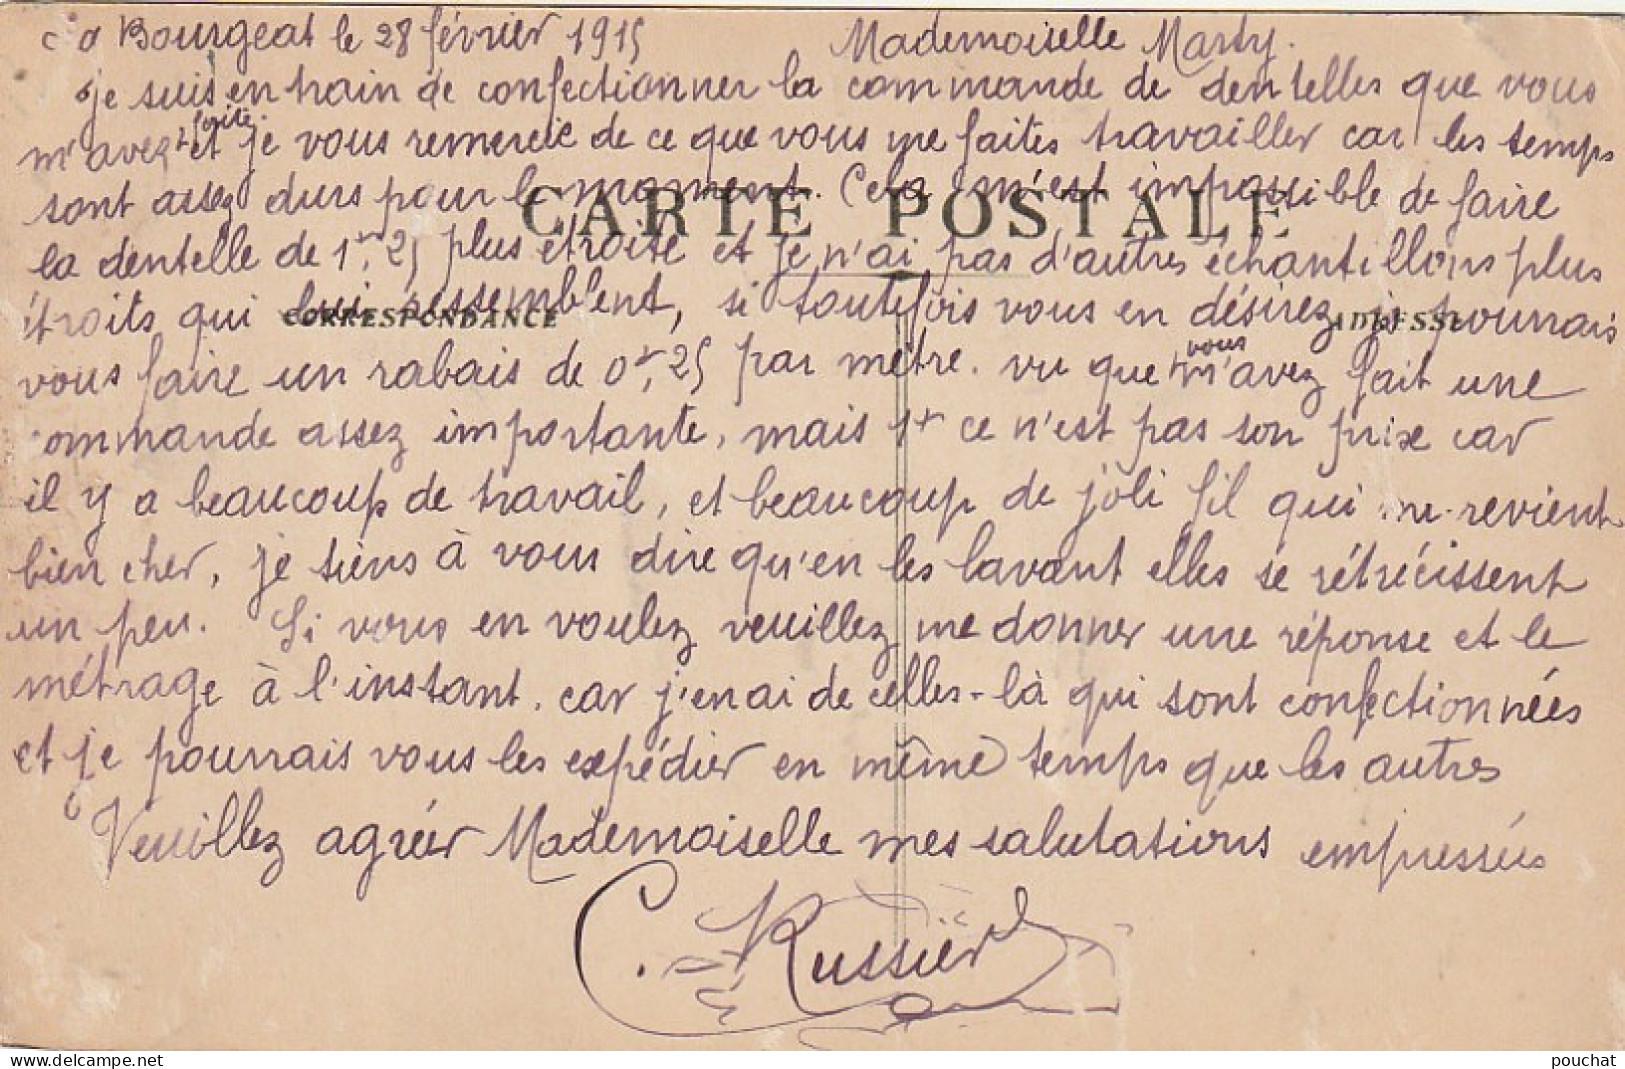 Bourgeat le 28 février 1915 Mademoiselle Marty.
je suis en train de confectionner la commande de dentelles que vous
m'avez faite et je vous remercie de ce que vous me faites travailler car les temps
sont assez durs pour le moment. Cela m'est impossible de faire
CARTE POSTALE
la dentelle de 1fr,25 plus étroite et je n'ai pas d'autres échantillons plus
étroits qui lui ressemblent, si toutefois vous en désirez je pourrais
CORRESPONDANCE ADRESSE
vous faire un rabais de 0fr,25 par mètre. vu que vous m'avez fait une
ommande assez importante, mais 1fr ce n'est pas son prix car
il y a beaucoup de travail, et beaucoup de joli fil qui me revient
bien cher, je tiens à vous dire qu'en les lavant elles se rétrécissent
un peu. Si vous en voulez veuillez me donner une réponse et le
métrage à l'instant. car j'en ai de celles-là qui sont confectionnées
et je pourrais vous les expédier en même temps que les autres
Veuillez agréer Mademoiselle mes salutations empressées
C. Russier
pouchat